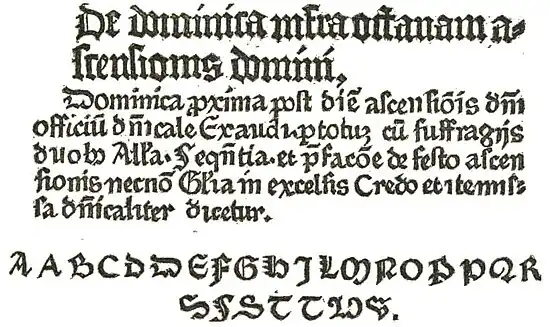 De dominica infra octauam a-
scensionis domini.
Dominica ꝓxima post diē ascensiōis dn̄i
officiū dn̄icale Exaudi. ꝑ totuꝫ cū suffragijs
duobꝰ All'a. Seqn̄tia. et p̄facōe de festo ascen
sionis necnō Gl'ia in excelsis Credo et ite mis-
sa dn̄icaliter dicetur.
A A B C D D D E F G H I L M N O P P Q R
S S S T T U S.